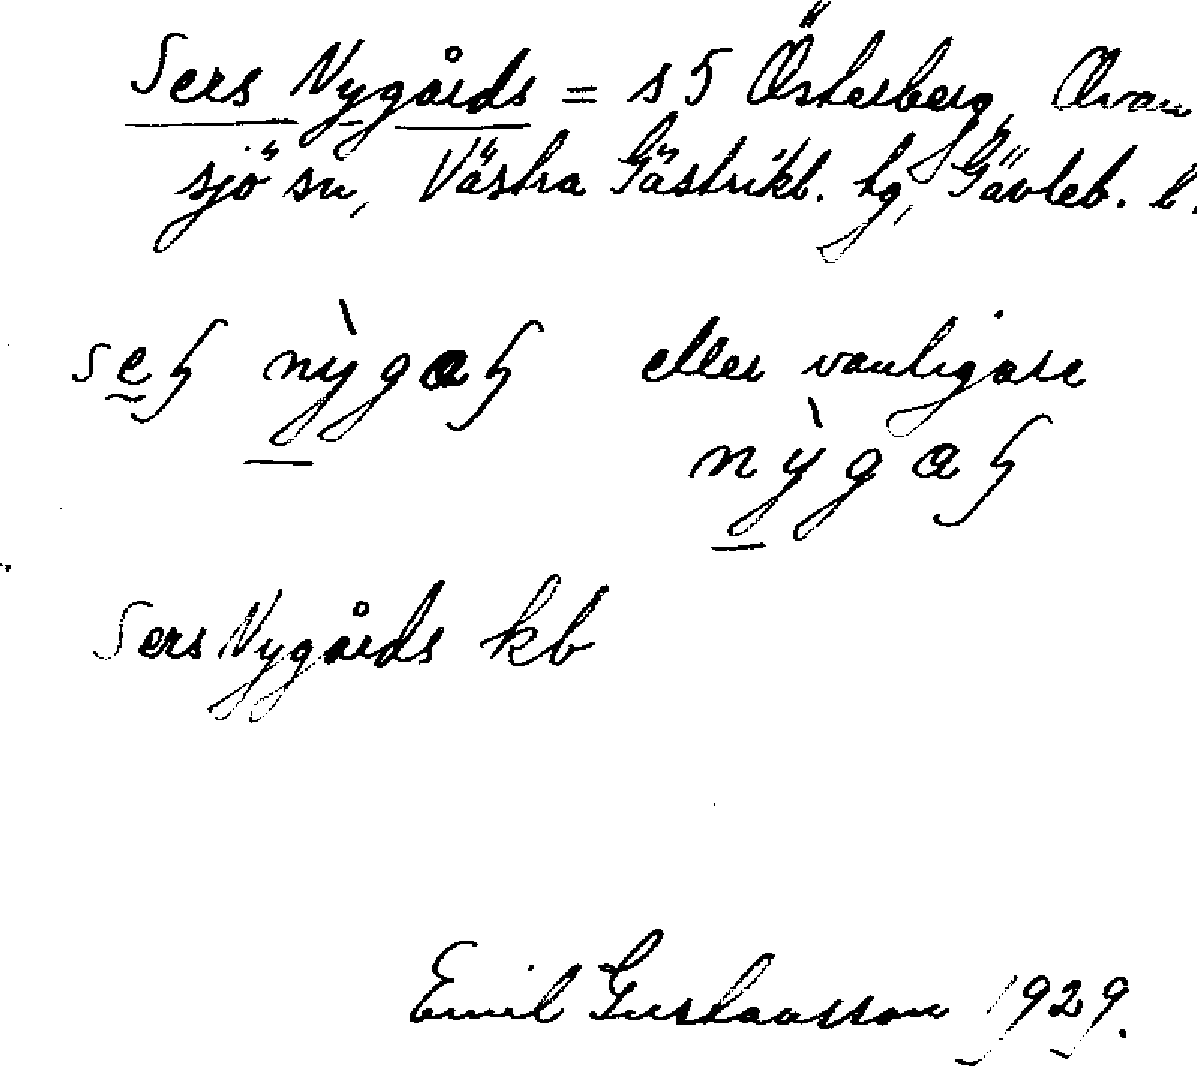 Sers Nygårds = s 5 Österberg, Ovan
sjö sn, Västra Gästrikl. tg, Gävleb. l.
seʂ nỳgaʂ eller vanligare
nỳgaʂ
Sers Nygårds kb
Emil Gustavsson 1929.